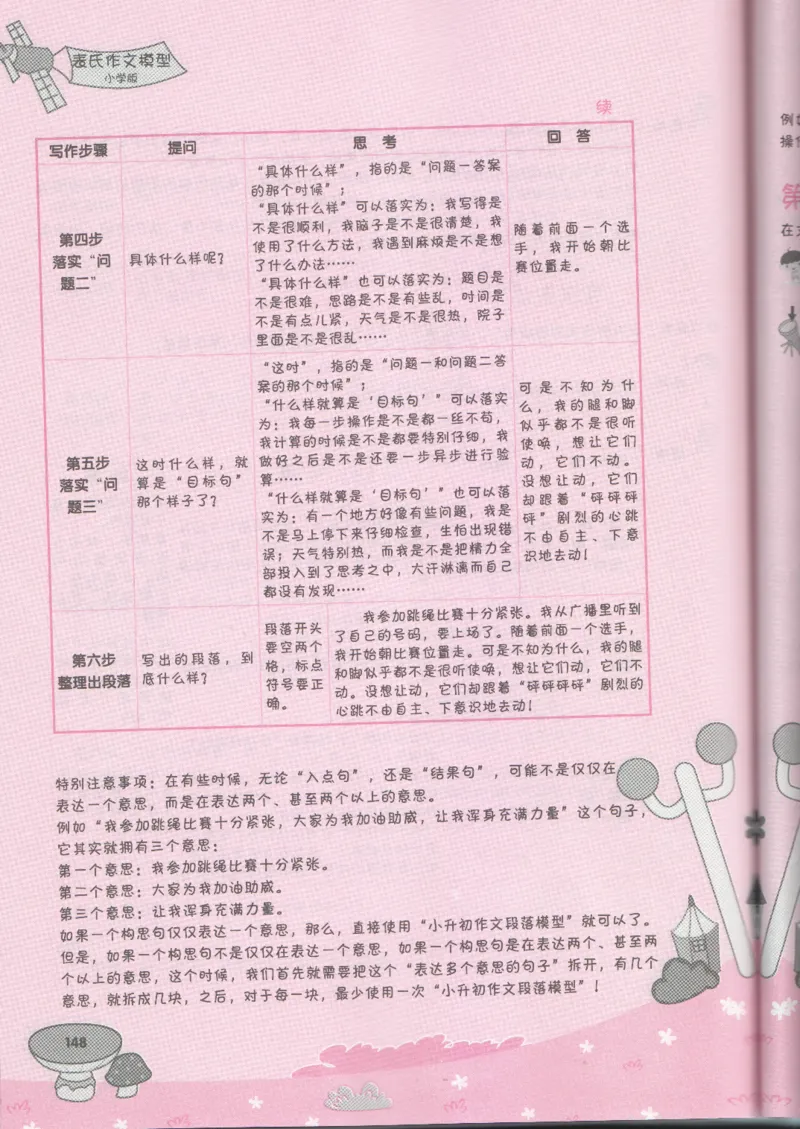 袁氏作文模型
小学版
续
写作步骤
提问
思 考
回 答
第四步
落实“问
题二”
具体什么样呢？
“具体什么样”，指的是“问题一答案
的那个时候”；
“具体什么样”可以落实为：我写得是
不是很顺利，我脑子是不是很清楚，我
使用了什么方法，我遇到麻烦是不是想
了什么办法……
“具体什么样”也可以落实为：题目是
不是很难，思路是不是有些乱，时间是
不是有点儿紧，天气是不是很热，院子
里面是不是很乱……
随着前面一个选
手，我开始朝比
赛位置走。
第五步
落实“问
题三”
这时什么样，就
算是“目标句”
那个样子了？
“这时”，指的是“问题一和问题二答
案的那个时候”；
“什么样就算是‘目标句’”可以落实
为：我每一步操作是不是都一丝不苟，
我计算的时候是不是都要特别仔细，我
做好之后是不是还要一步异步进行验
算……
“什么样就算是‘目标句’”也可以落
实为：有一个地方好像有些问题，我是
不是马上停下来仔细检查，生怕出现错
误；天气特别热，而我是不是把精力全
部投入到了思考之中，大汗淋漓而自己
都没有发现……
可是不知为什
么，我的腿和脚
似乎都不是很听
使唤，想让它们
动，它们不动。
没想让动，它们
却跟着“砰砰砰
砰”剧烈的心跳
不由自主、下意
识地去动！
第六步
整理出段落
写出的段落，到
底什么样？
段落开头
要空两个
格，标点
符号要正
确。
我参加跳绳比赛十分紧张。我从广播里听到
了自己的号码，要上场了。随着前面一个选手，
我开始朝比赛位置走。可是不知为什么，我的腿
和脚似乎都不是很听使唤，想让它们动，它们不
动。没想让动，它们却跟着“砰砰砰砰”剧烈的
心跳不由自主、下意识地去动！
特别注意事项：在有些时候，无论“入点句”，还是“结果句”，可能不是仅仅在
表达一个意思，而是在表达两个、甚至两个以上的意思。
例如“我参加跳绳比赛十分紧张，大家为我加油助威，让我浑身充满力量”这个句子，
它其实就拥有三个意思：
第一个意思：我参加跳绳比赛十分紧张。
第二个意思：大家为我加油助威。
第三个意思：让我浑身充满力量。
如果一个构思句仅仅表达一个意思，那么，直接使用“小升初作文段落模型”就可以了。
但是，如果一个构思句不是仅仅在表达一个意思，如果一个构思句是在表达两个、甚至两
个以上的意思，这个时候，我们首先就需要把这个“表达多个意思的句子”拆开，有几个
意思，就拆成几块，之后，对于每一块，最少使用一次“小升初作文段落模型”！
148
例如
操作
第
在